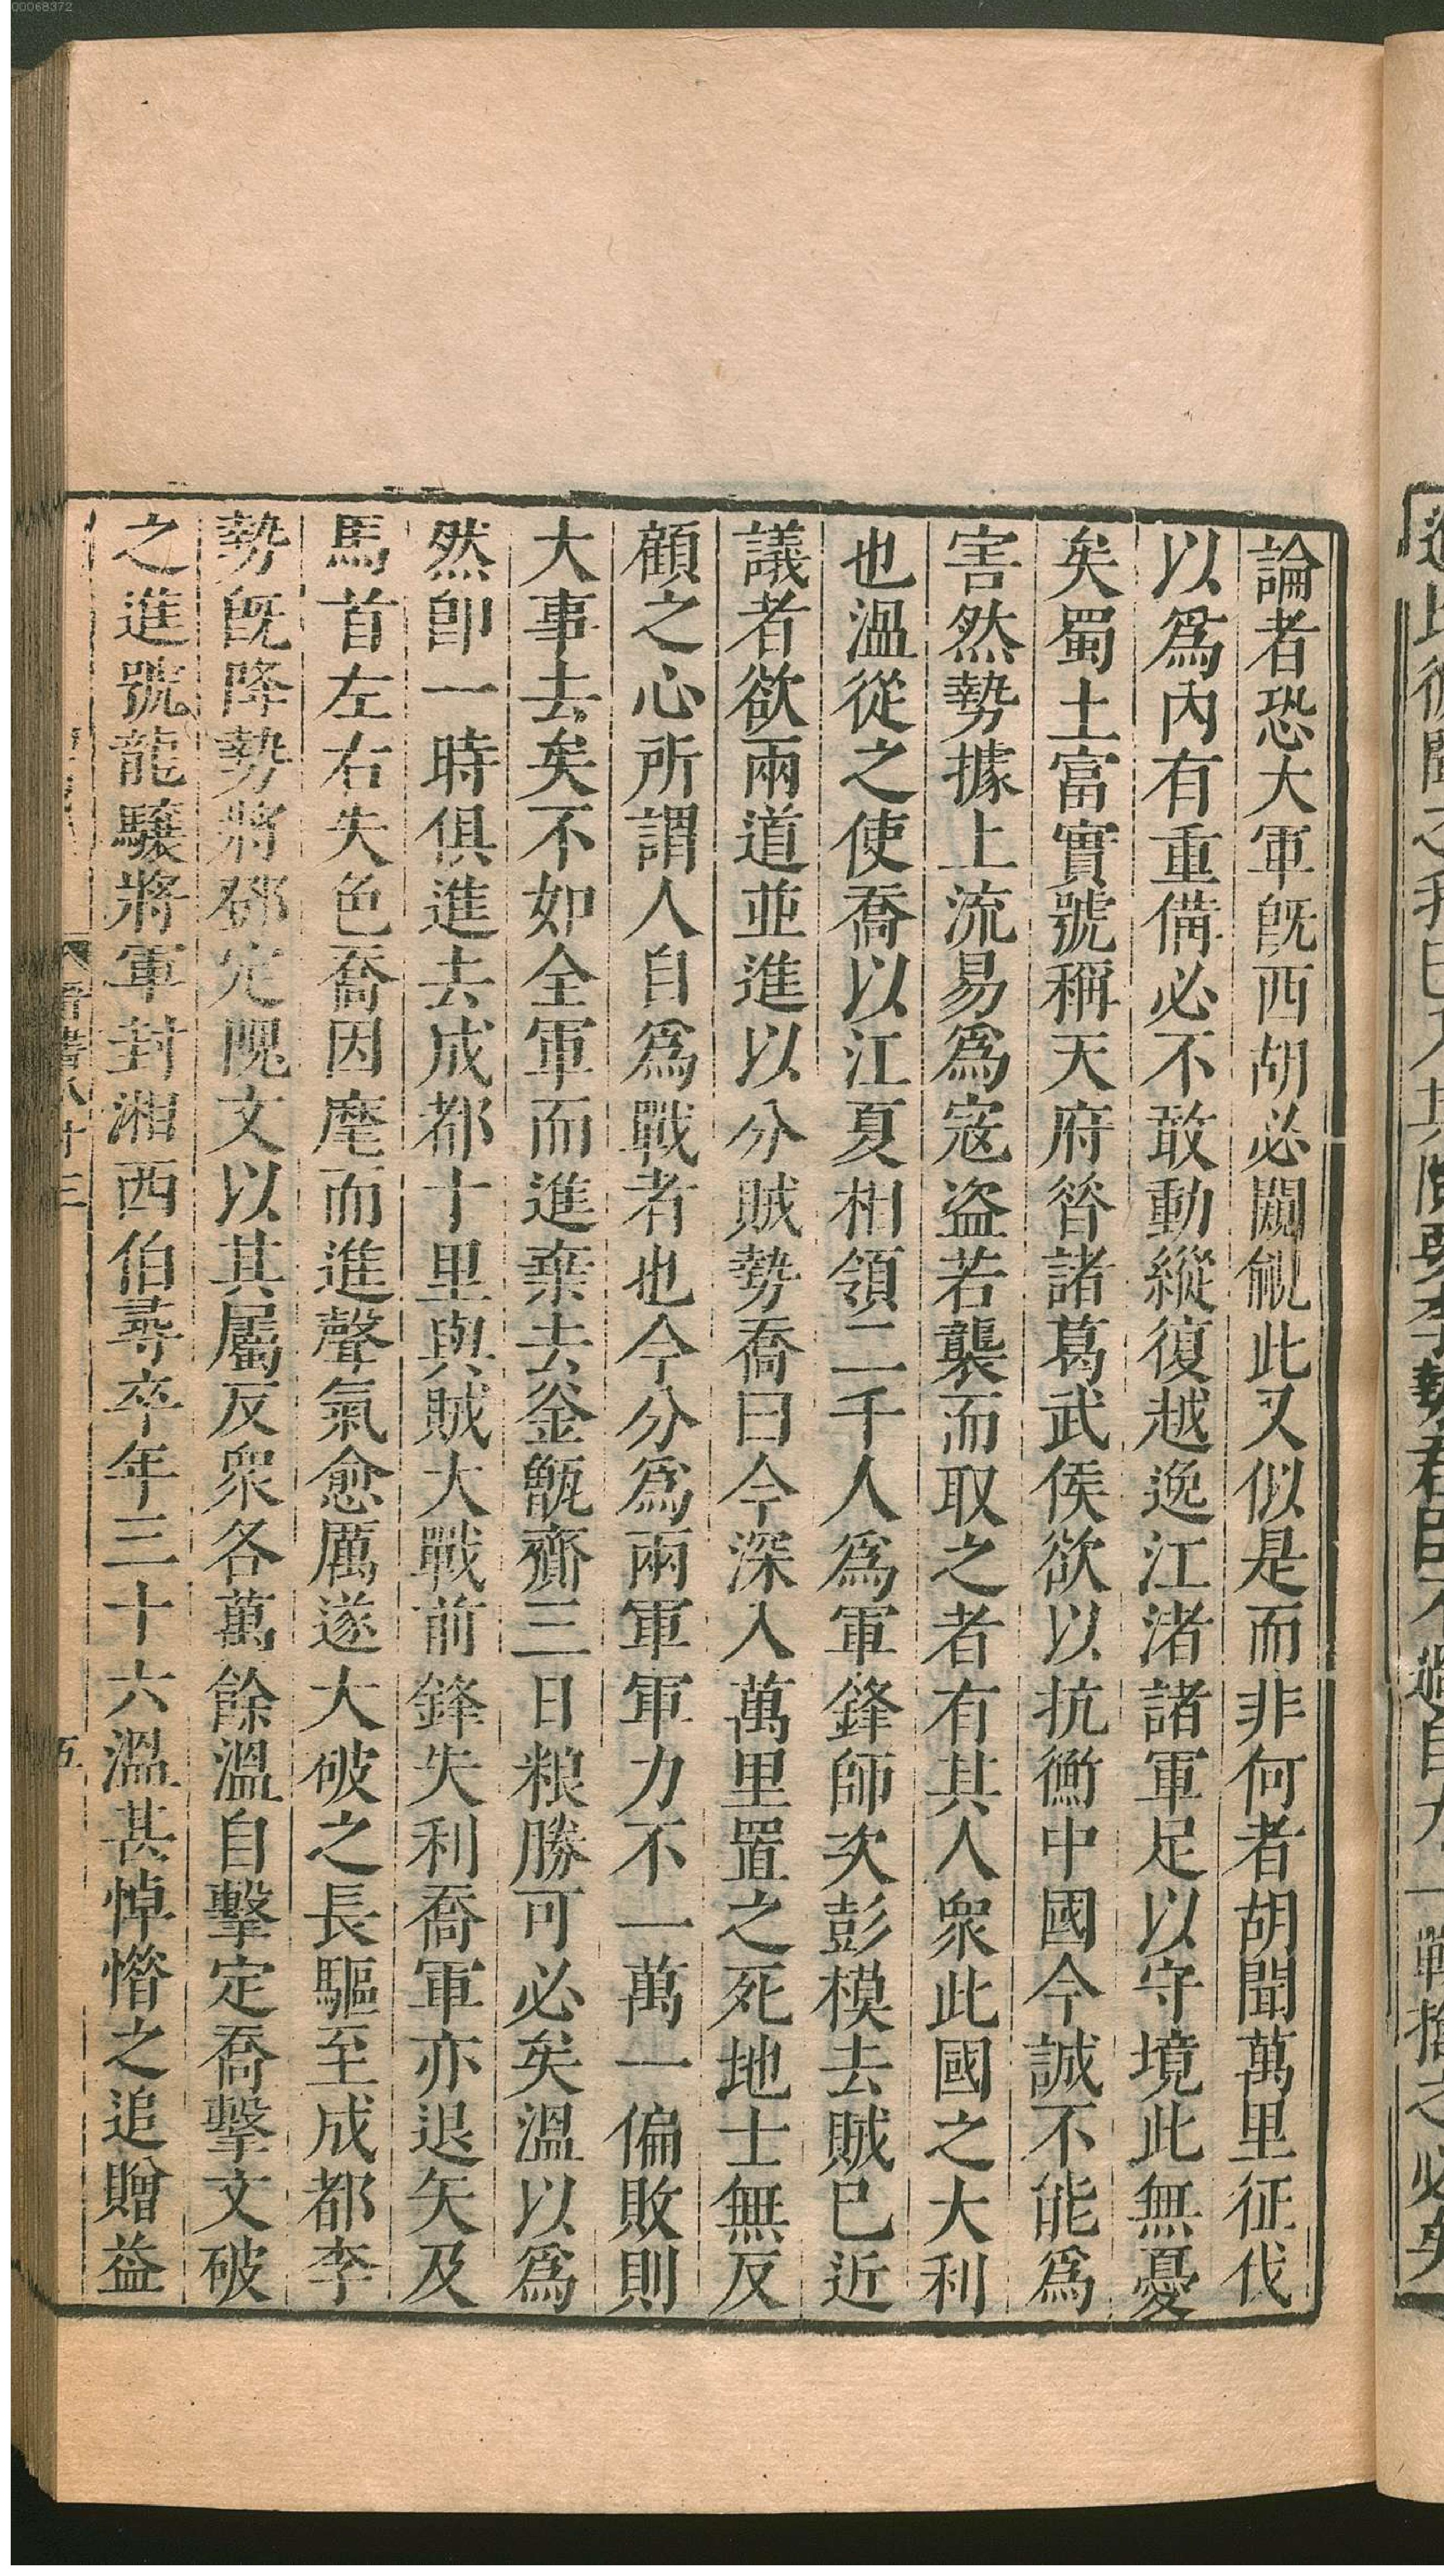 00068372
論者恐大軍旣西胡必闚覦此又似是而非何者胡聞萬里征伐
以爲內有重備必不敢動縱復越逸江渚諸軍足以守境此無憂
矣蜀土富實號稱天府昝諸葛武侯欲以抗衡中國今誠不能爲
害然勢據上流易爲寇盜若襲而取之者有其人衆此國之大利
也溫從之使喬以江夏相領二千人爲軍鋒師次彭模去賊已近
議者欲兩道並進以分賊勢喬曰今深入萬里置之死地士無反
顧之心所謂人自爲戰者也今分爲兩軍軍力不一萬一偏敗則
大事去矣不如全軍而進棄去釜甑齎三日粮勝可必矣溫以爲
然卽一時俱進去成都十里與賊大戰前鋒失利喬軍亦退矢及
馬首左右失色喬因麾而進聲氣愈厲遂大破之長驅至成都李
勢旣降勢將鄧定隗文以其屬反衆各萬餘溫自擊定喬擊文破
之進號龍驤將軍封湘西伯尋卒年三十六溫甚悼惜之追贈益
晉書八十三
五